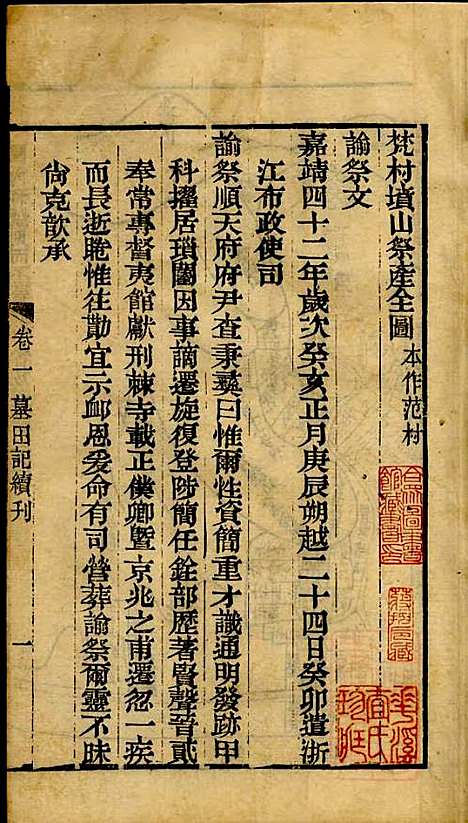 梵村墳山祭產全圖 本作范村
諭祭文
嘉靖四十二年歲次癸亥正月庚辰朔越二十四日癸卯遣浙
江布政使司
諭祭順天府府尹查秉彝曰惟爾性資簡重才識通明發跡甲
科擢居瑣闥因事謫遷旋復登陟簡任銓部歷著賢聲晉貳
奉常專督夷館獻刑棘寺載正僕卿暨京兆之甫遷忽一疾
而長逝睠惟往勩宜示卹恩爰命有司營葬諭祭爾靈不昧
尚克歆承
卷一 墓田記續刊 一